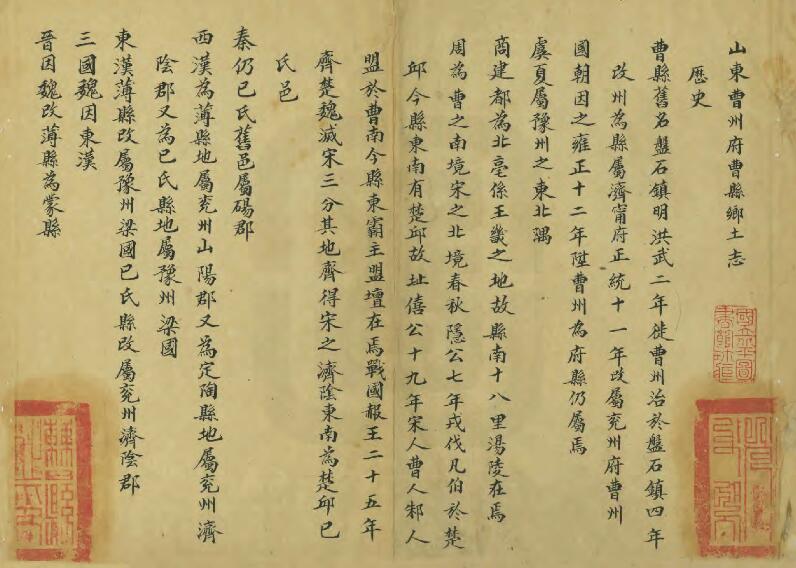 山東曹州府曹縣鄉土志
歷史
曹縣舊名盤石鎮明洪武二年徙曹州治於盤石鎮四年
改州為縣屬濟甯府正統十一年改屬兗州府曹州
國朝因之雍正十二年陞曹州為府縣仍屬焉
虞夏屬豫州之東北隅
商建都為北亳係王畿之地故縣南十八里湯陵在焉
周為曹之南境宋之北境春秋隱公七年戎伐凡伯於楚
邱今縣東南有楚邱故址僖公十九年宋人曹人邾人
盟於曹南今縣東霸主盟壇在焉戰國報王二十五年
齊楚魏滅宋三分其地齊得宋之濟陰東南為楚邱已
氏邑
秦仍已氏舊邑屬碭郡
西漢為薄縣地屬兗州山陽郡又為定陶縣地屬兗州濟
陰郡又為已氏縣地屬豫州梁國
東漢薄縣改屬豫州梁國已氏縣改屬兗州濟陰郡
三國魏因東漢
晉因魏改薄縣為蒙縣
國立北平圖
書館珍藏